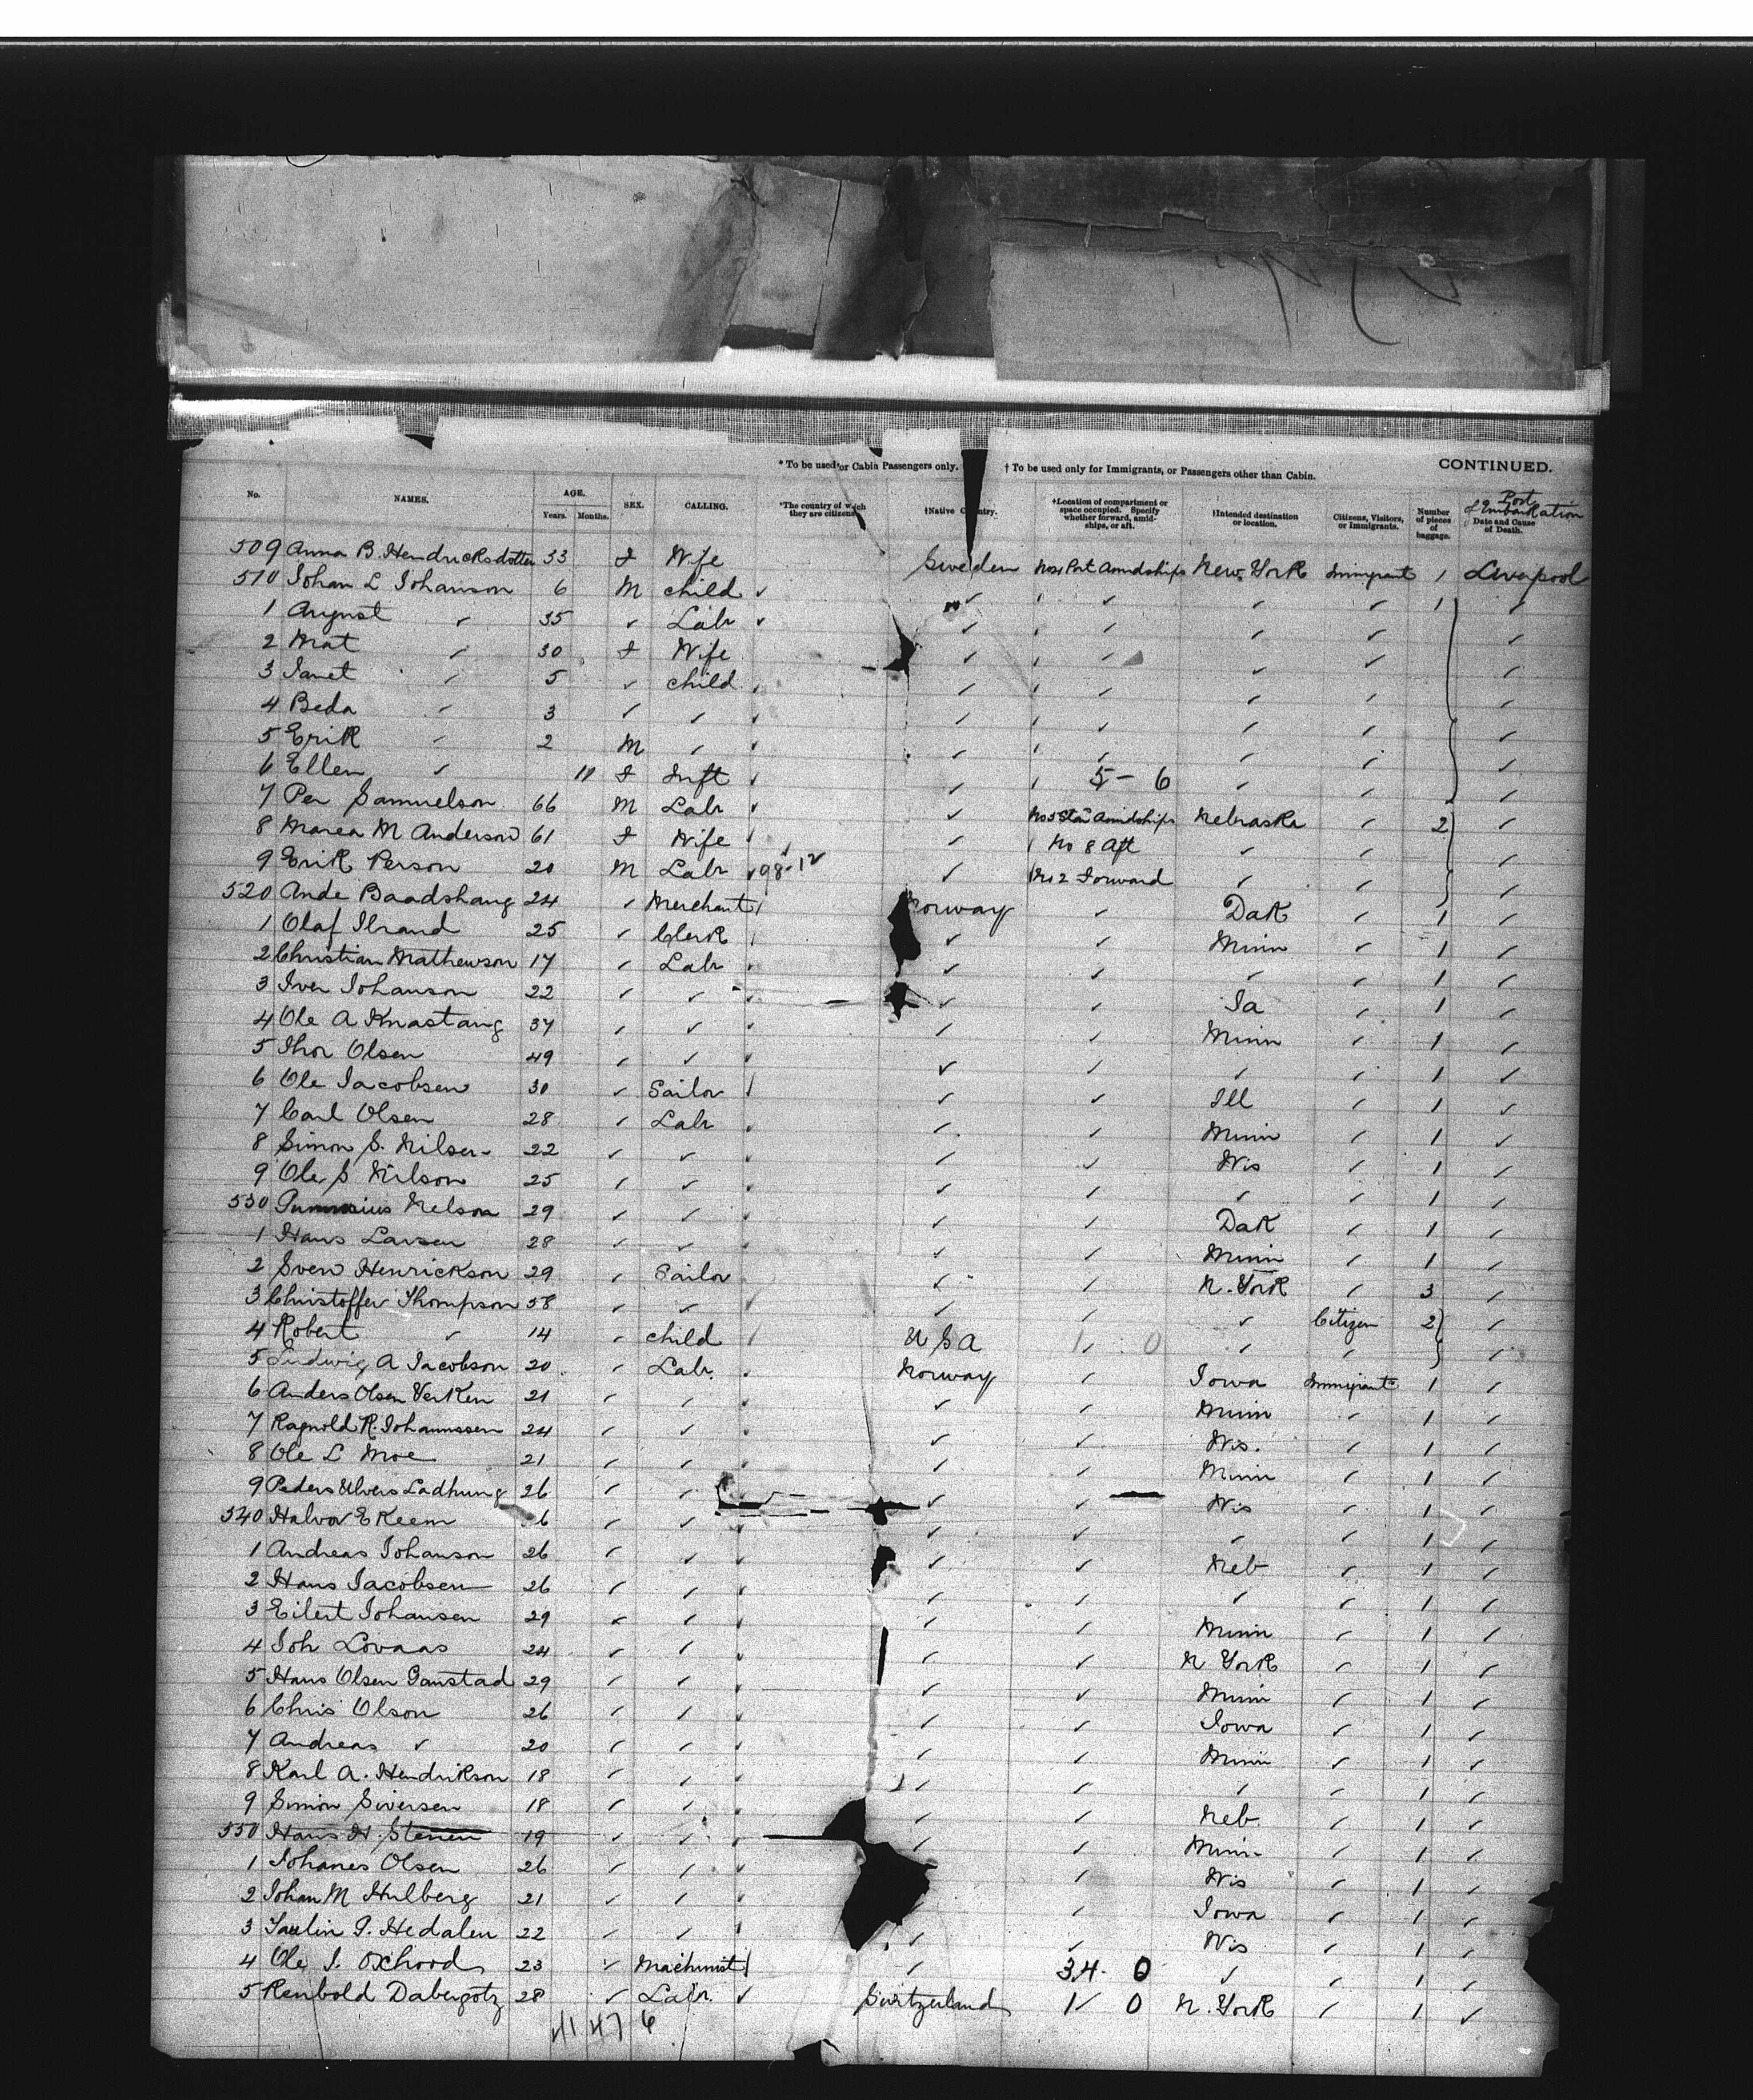 * To be used for Cabin Passengers only. † To be used only for Immigrants, or Passengers other than Cabin. CONTINUED.
No. NAMES. AGE. Years. Months. SEX. CALLING. *The country of which they are citizens †Native Country. †Location of compartment or space occupied. Specify whether forward, amidships, or aft. †Intended destination or location. Citizens, Visitors, or Immigrants. Number of pieces of baggage. Port of Embarkation Date and Cause of Death.
509 Anna B. Hendricksdotter 33 F Wife Sweden Port Amidships New York Immigrant 1 Liverpool
510 Johan L Johanson 6 M child ✓ ✓ ✓ ✓ ✓ 1 ✓
1 August ✓ 35 ✓ Labr ✓ ✓ ✓ ✓ ✓ ✓
2 Mat ✓ 30 F Wife ✓ ✓ ✓ ✓ ✓
3 Janet ✓ 5 ✓ child ✓ ✓ ✓ ✓ ✓
4 Beda ✓ 3 ✓ ✓ ✓ ✓ ✓ ✓ ✓
5 Erik ✓ 2 M ✓ ✓ ✓ ✓ ✓ ✓
6 Ellen ✓ 11 F Inft ✓ 5 - 6 ✓ ✓ ✓
7 Per Samuelson 66 M Labr ✓ No 5 Star Amidships Nebraska ✓ 2 ✓
8 Marea M Anderson 61 F Wife ✓ No 8 Aft ✓ ✓ ✓
9 Erik Person 20 M Labr 98-12 ✓ No 2 Forward ✓ ✓ ✓
520 Ande Baadshaug 24 ✓ Merchant Norway ✓ Dak ✓ 1 ✓
1 Olaf 25 ✓ Clerk ✓ ✓ Minn ✓ 1 ✓
2 Christian Mathewson 17 ✓ Labr ✓ ✓ ✓ ✓ 1 ✓
3 Iver Johanson 22 ✓ ✓ ✓ ✓ Ia ✓ 1 ✓
4 Ole A Knastang 37 ✓ ✓ ✓ ✓ Minn ✓ 1 ✓
5 Thor Olsen 49 ✓ ✓ ✓ ✓ ✓ ✓ 1 ✓
6 Ole Jacobsen 30 ✓ Sailor ✓ ✓ Ill ✓ 1 ✓
7 Carl Olsen 28 ✓ Labr ✓ ✓ Minn ✓ 1 ✓
8 Simon S. Nilsen 22 ✓ ✓ ✓ ✓ Wis ✓ 1 ✓
9 Ole S Nilson 25 ✓ ✓ ✓ ✓ ✓ ✓ 1 ✓
530 Nelson 29 ✓ ✓ ✓ ✓ Dak ✓ 1 ✓
1 Hans Larsen 28 ✓ ✓ ✓ ✓ Minn ✓ 1 ✓
2 Sven Henrickson 29 ✓ Sailor ✓ ✓ N. York ✓ 3 ✓
3 Christoffer Thompson 58 ✓ ✓ ✓ ✓ ✓ Citizen 2 ✓
4 Robert ✓ 14 ✓ child U S A 1 0 ✓ ✓ ✓
5 Ludwig A Jacobson 20 ✓ Labr. Norway ✓ Iowa Immigrant 1 ✓
6 Anders Olsen Verken 21 ✓ ✓ ✓ ✓ Minn ✓ 1 ✓
7 Ragnold R. Johannssen 24 ✓ ✓ ✓ ✓ Wis. ✓ 1 ✓
8 Ole L Moe 21 ✓ ✓ ✓ ✓ Minn ✓ 1 ✓
9 Peders Ladhung 26 ✓ ✓ ✓ ✓ Wis ✓ 1 ✓
540 Halvor E Keem 6 ✓ ✓ ✓ ✓ ✓ ✓ 1 ✓
1 Andreas Johanson 26 ✓ ✓ ✓ ✓ Neb ✓ 1 ✓
2 Hans Jacobsen 26 ✓ ✓ ✓ ✓ ✓ ✓ 1 ✓
3 Eilert Johansen 29 ✓ ✓ ✓ ✓ Minn ✓ 1 ✓
4 Joh Lovaas 24 ✓ ✓ ✓ ✓ N York ✓ 1 ✓
5 Hans Olsen Gaustad 29 ✓ ✓ ✓ ✓ Minn ✓ 1 ✓
6 Chris Olson 26 ✓ ✓ ✓ ✓ Iowa ✓ 1 ✓
7 Andreas ✓ 20 ✓ ✓ ✓ ✓ Minn ✓ 1 ✓
8 Karl A. Hendrikson 18 ✓ ✓ ✓ ✓ ✓ ✓ 1 ✓
9 Simon Siversen 18 ✓ ✓ ✓ ✓ Neb ✓ 1 ✓
550 Hans H. Stenen 19 ✓ ✓ ✓ ✓ Minn ✓ 1 ✓
1 Johanes Olsen 26 ✓ ✓ ✓ Wis ✓ 1 ✓
2 Johan M Hulberg 21 ✓ ✓ ✓ Iowa ✓ 1 ✓
3 Hedalen 22 ✓ ✓ ✓ ✓ Wis ✓ 1 ✓
4 Ole J. Oxhood 23 ✓ Machinist ✓ 34 - 0 ✓ ✓ 1 ✓
5 Renbold Dabergotz 28 ✓ Labr. ✓ Switzerland 1 ✓ 0 N. York ✓ 1 ✓
41 47 6